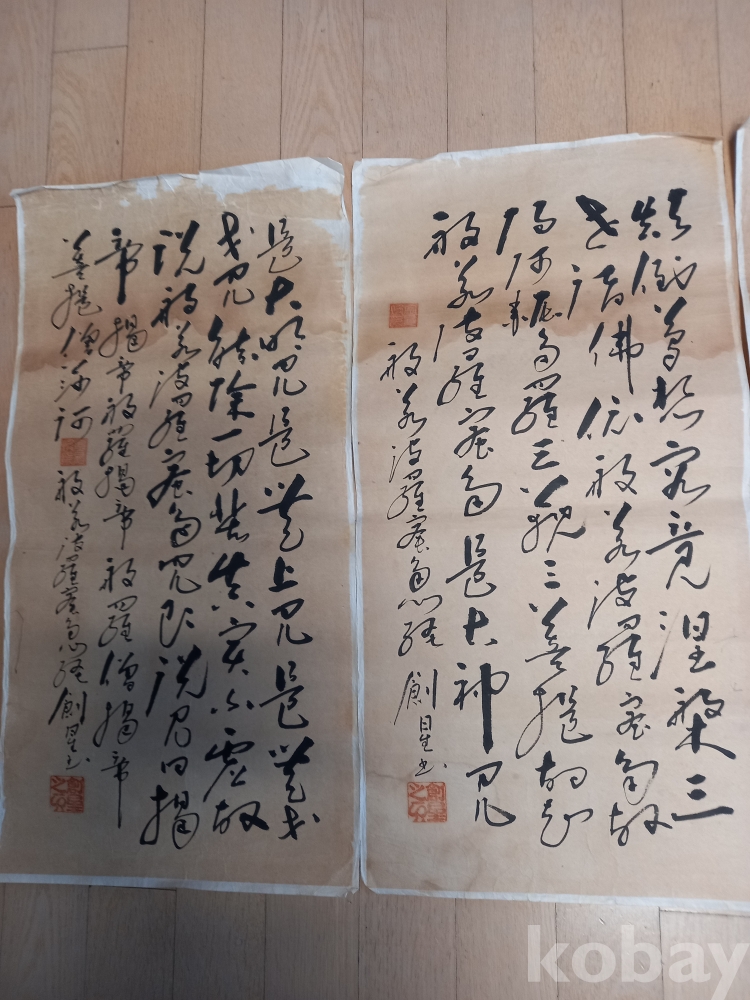 顛倒夢想究竟涅槃三
世諸佛依般若波羅蜜多故
得阿耨多羅三藐三菩提故知
般若波羅蜜多是大神呪
般若波羅蜜多心経 創星書
是大明呪是無上呪是無等
等呪能除一切苦真實不虛故
說般若波羅蜜多呪即說呪曰揭
帝揭帝般羅揭帝般羅僧揭帝
菩提僧莎訶 般若波羅蜜多心経 創星書
kobay